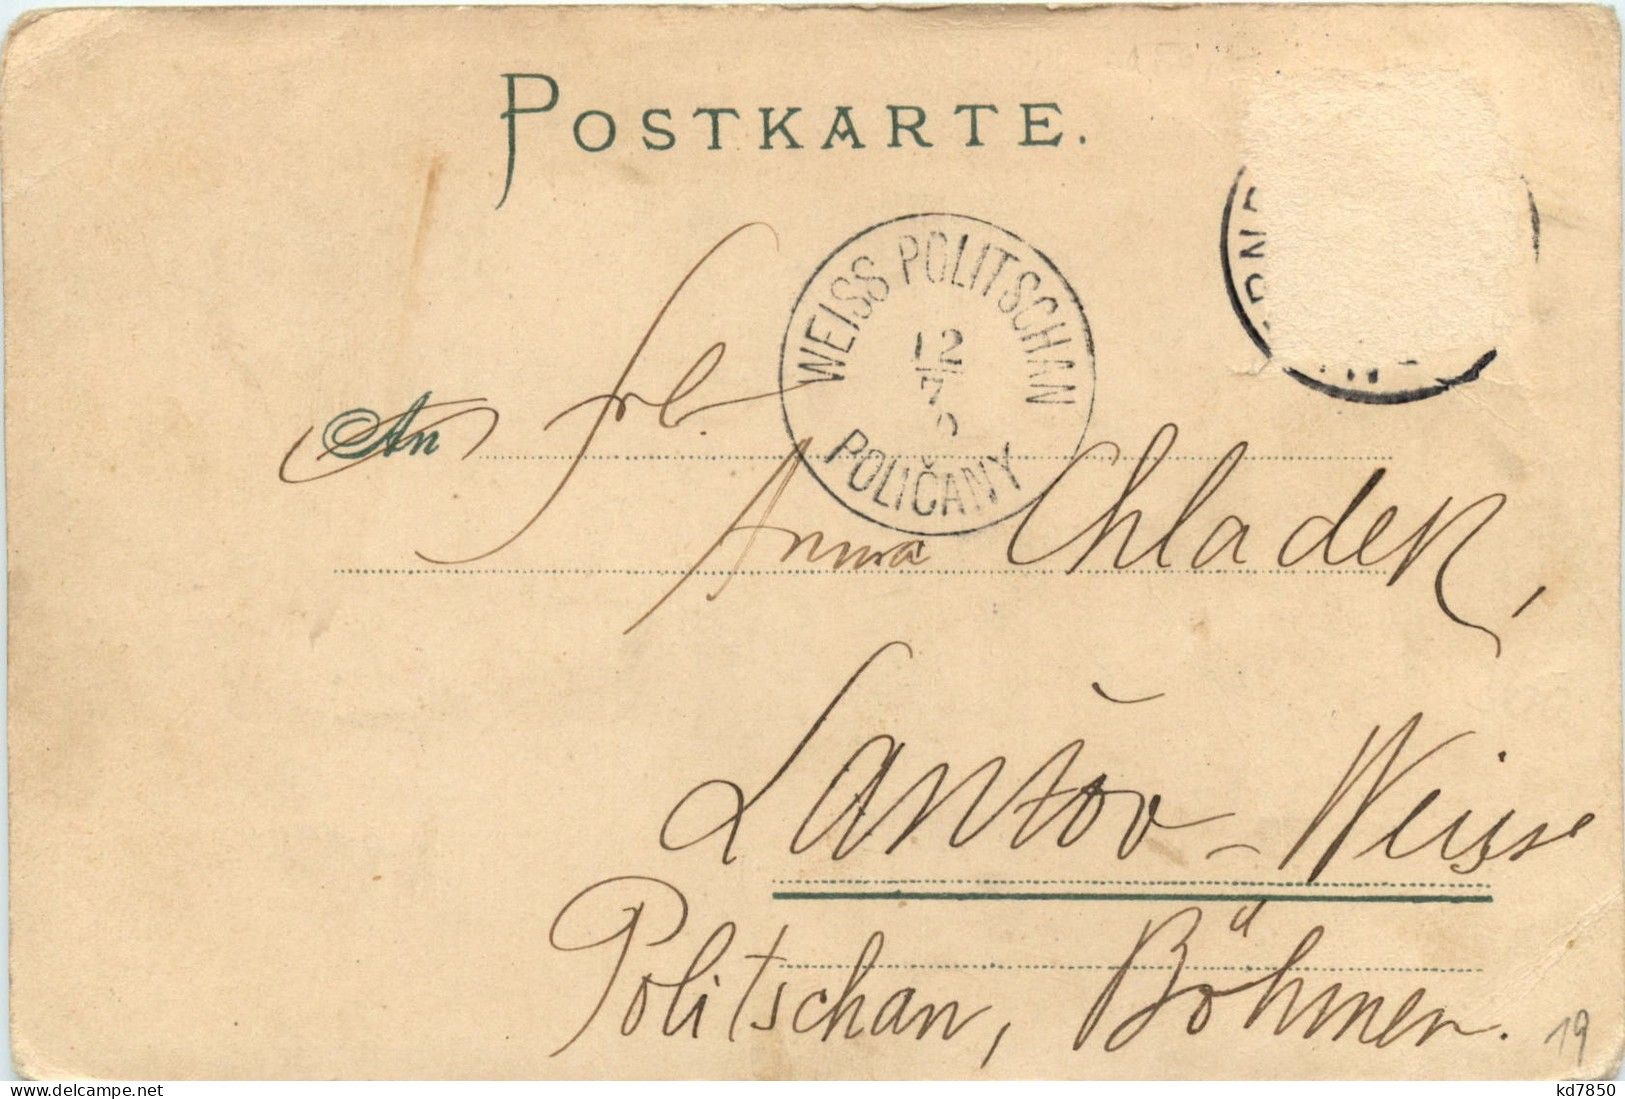 POSTKARTE.
WEISS POLITSCHAN
12
7
POLIČANY
An Frl.
Anna Chladek,
Lanžov - Weiss
Politschan, Böhmen.
19
www.delcampe.net
kd7850